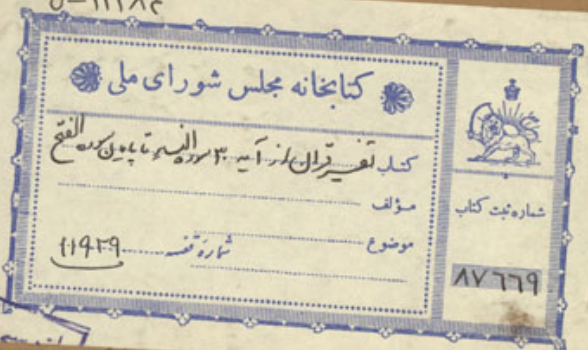 کتابخانه مجلس شورای ملی
کتاب تفسیر قرآن از آیه ۳۰ سوره النساء تا پایان سوره الفتح
مؤلف
موضوع
شماره قفسه ۱۱۹۲۹
شماره ثبت کتاب
۸۷۶۶۹